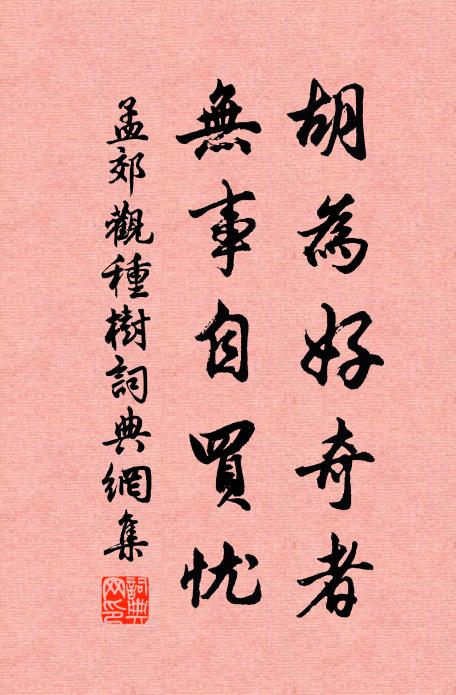 胡為好奇者
無事自買忧
孟郊觀種樹詞典網集
詞典
网印